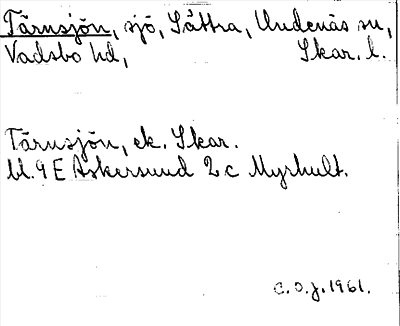 Tärnsjön, sjö, Såttra, Undenäs sn,
Vadsbo hd, Skar. l.
Tärnsjön, ek. Skar.
bl. 9 E Askersund 2 c Myrhult.
C.O.J. 1961.